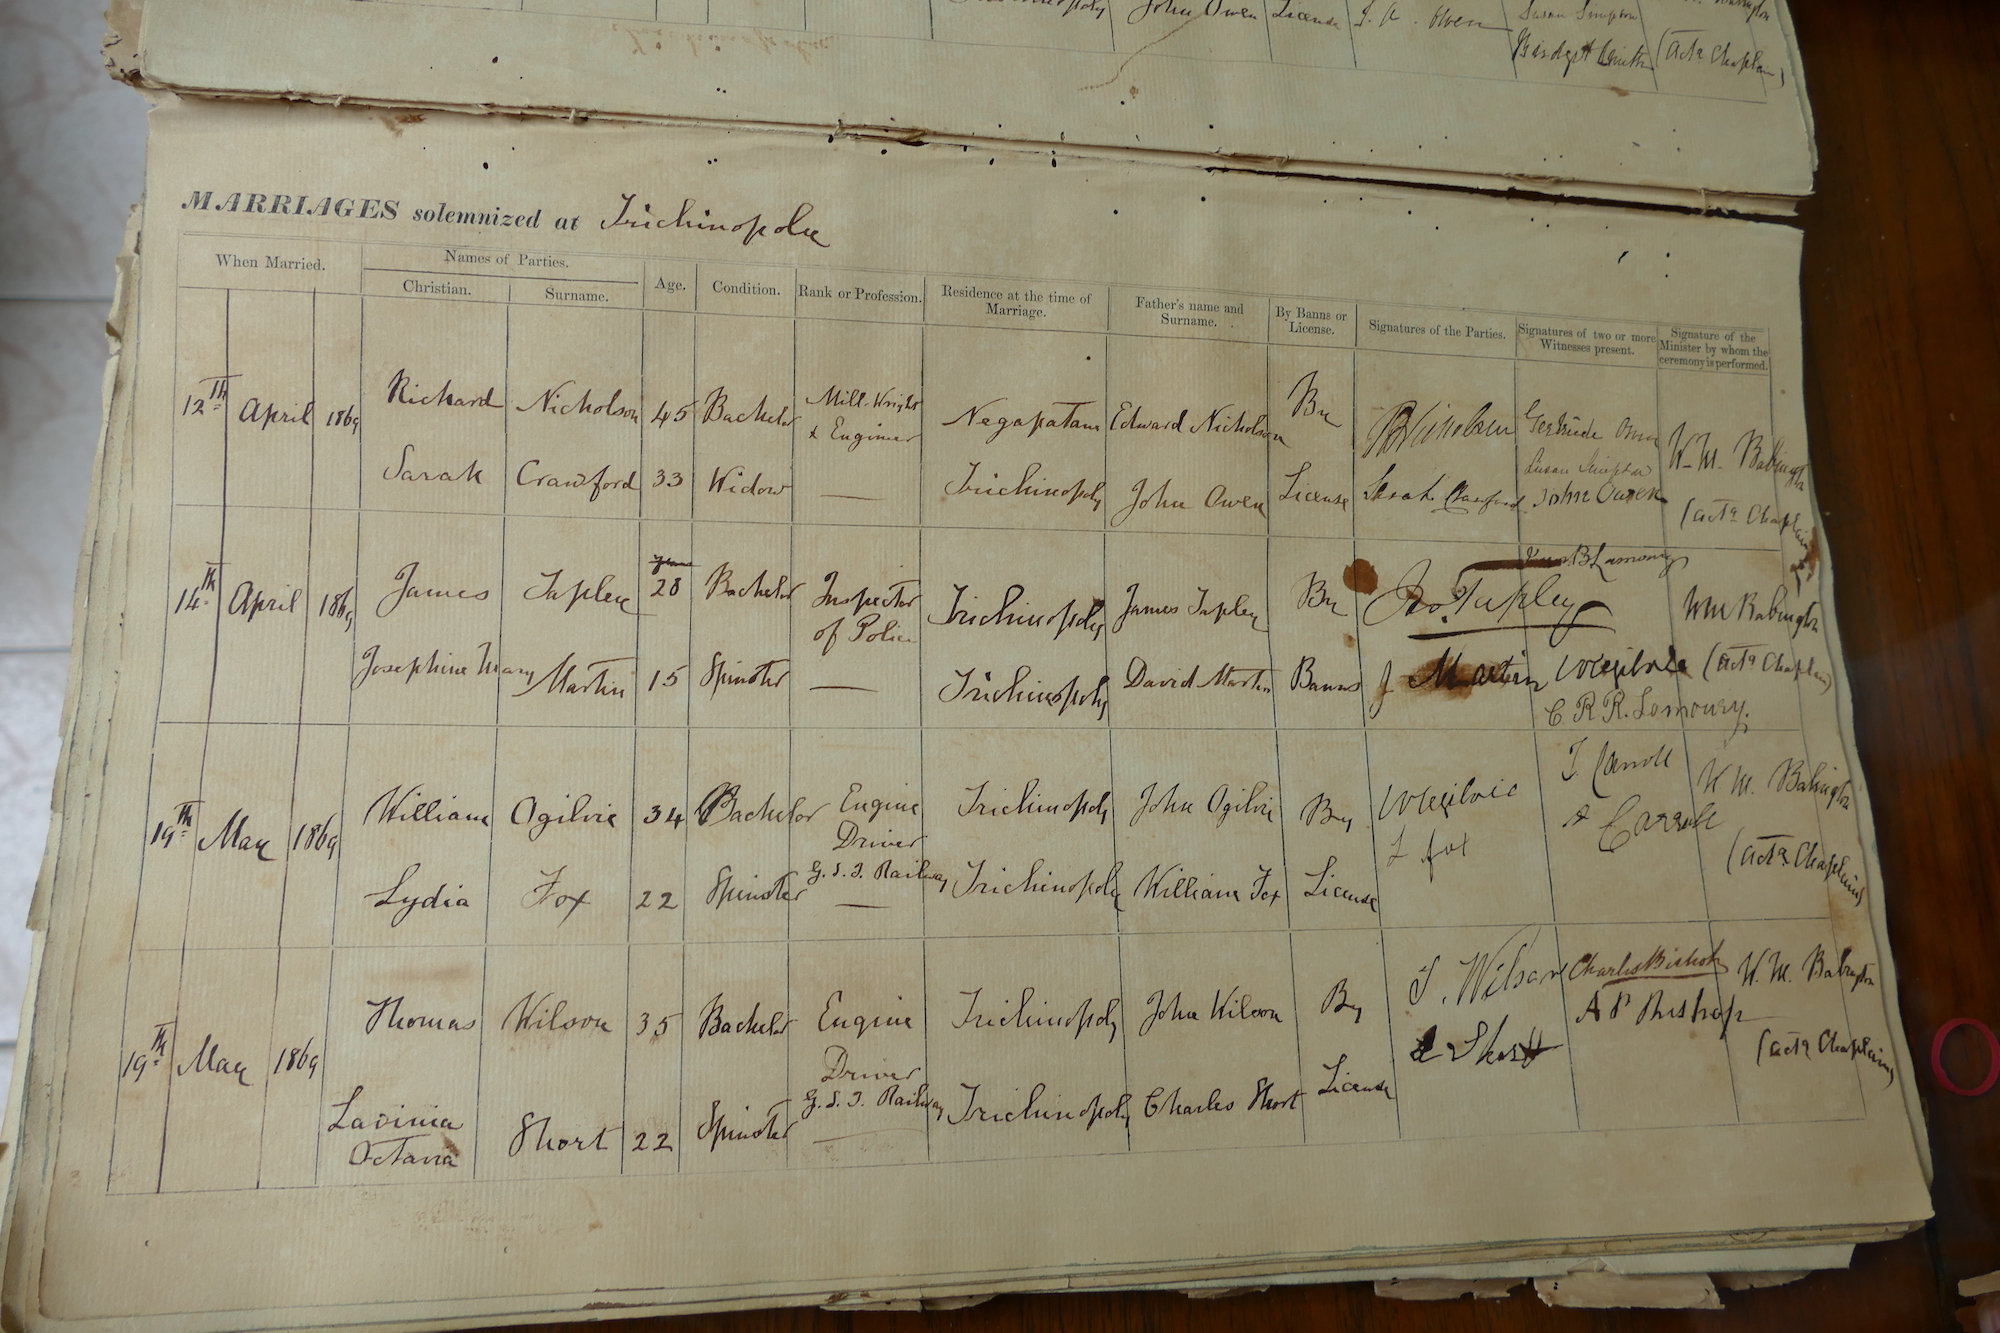 John Owen License J. A. Owen Susan Simpson
Bridget Smith (Actg Chaplain)
MARRIAGES solemnized at Trichinopoly
When Married. Names of Parties. Age. Condition. Rank or Profession. Residence at the time of Marriage. Father's name and Surname. By Banns or License. Signatures of the Parties. Signatures of two or more Witnesses present. Signature of the Minister by whom the ceremony is performed.
Christian. Surname.
12th April 1869 Richard Nicholson 45 Bachelor Mill-Wright & Engineer Negapatam Edward Nicholson By R Nicholson Gertrude Owen W. M. Babington
Sarah Crawford 33 Widow — Trichinopoly John Owen License Sarah Crawford Susan Simpson
John Owen (Actg Chaplain)
14th April 1869 James Tapley 28 Bachelor Inspector of Police Trichinopoly James Tapley By Jas Tapley B Lamoury WM Babington
Josephine Mary Martin 15 Spinster — Trichinopoly David Martin Banns J Martin W Ogilvie (Actg Chaplain)
C R R. Lamoury.
19th May 1869 William Ogilvie 34 Bachelor Engine Driver G. S. I. Railway Trichinopoly John Ogilvie By W Ogilvie T Carroll W M. Babington
Lydia Fox 22 Spinster — Trichinopoly William Fox License L fox A Carroll (Actg Chaplain)
19th May 1869 Thomas Wilson 35 Bachelor Engine Driver G. S. I. Railway Trichinopoly John Wilson By T. Wilson Charles Bishop W. M. Babington
Lavinia Octavia Short 22 Spinster — Trichinopoly Charles Short License L Short A P Bishop (Actg Chaplain)